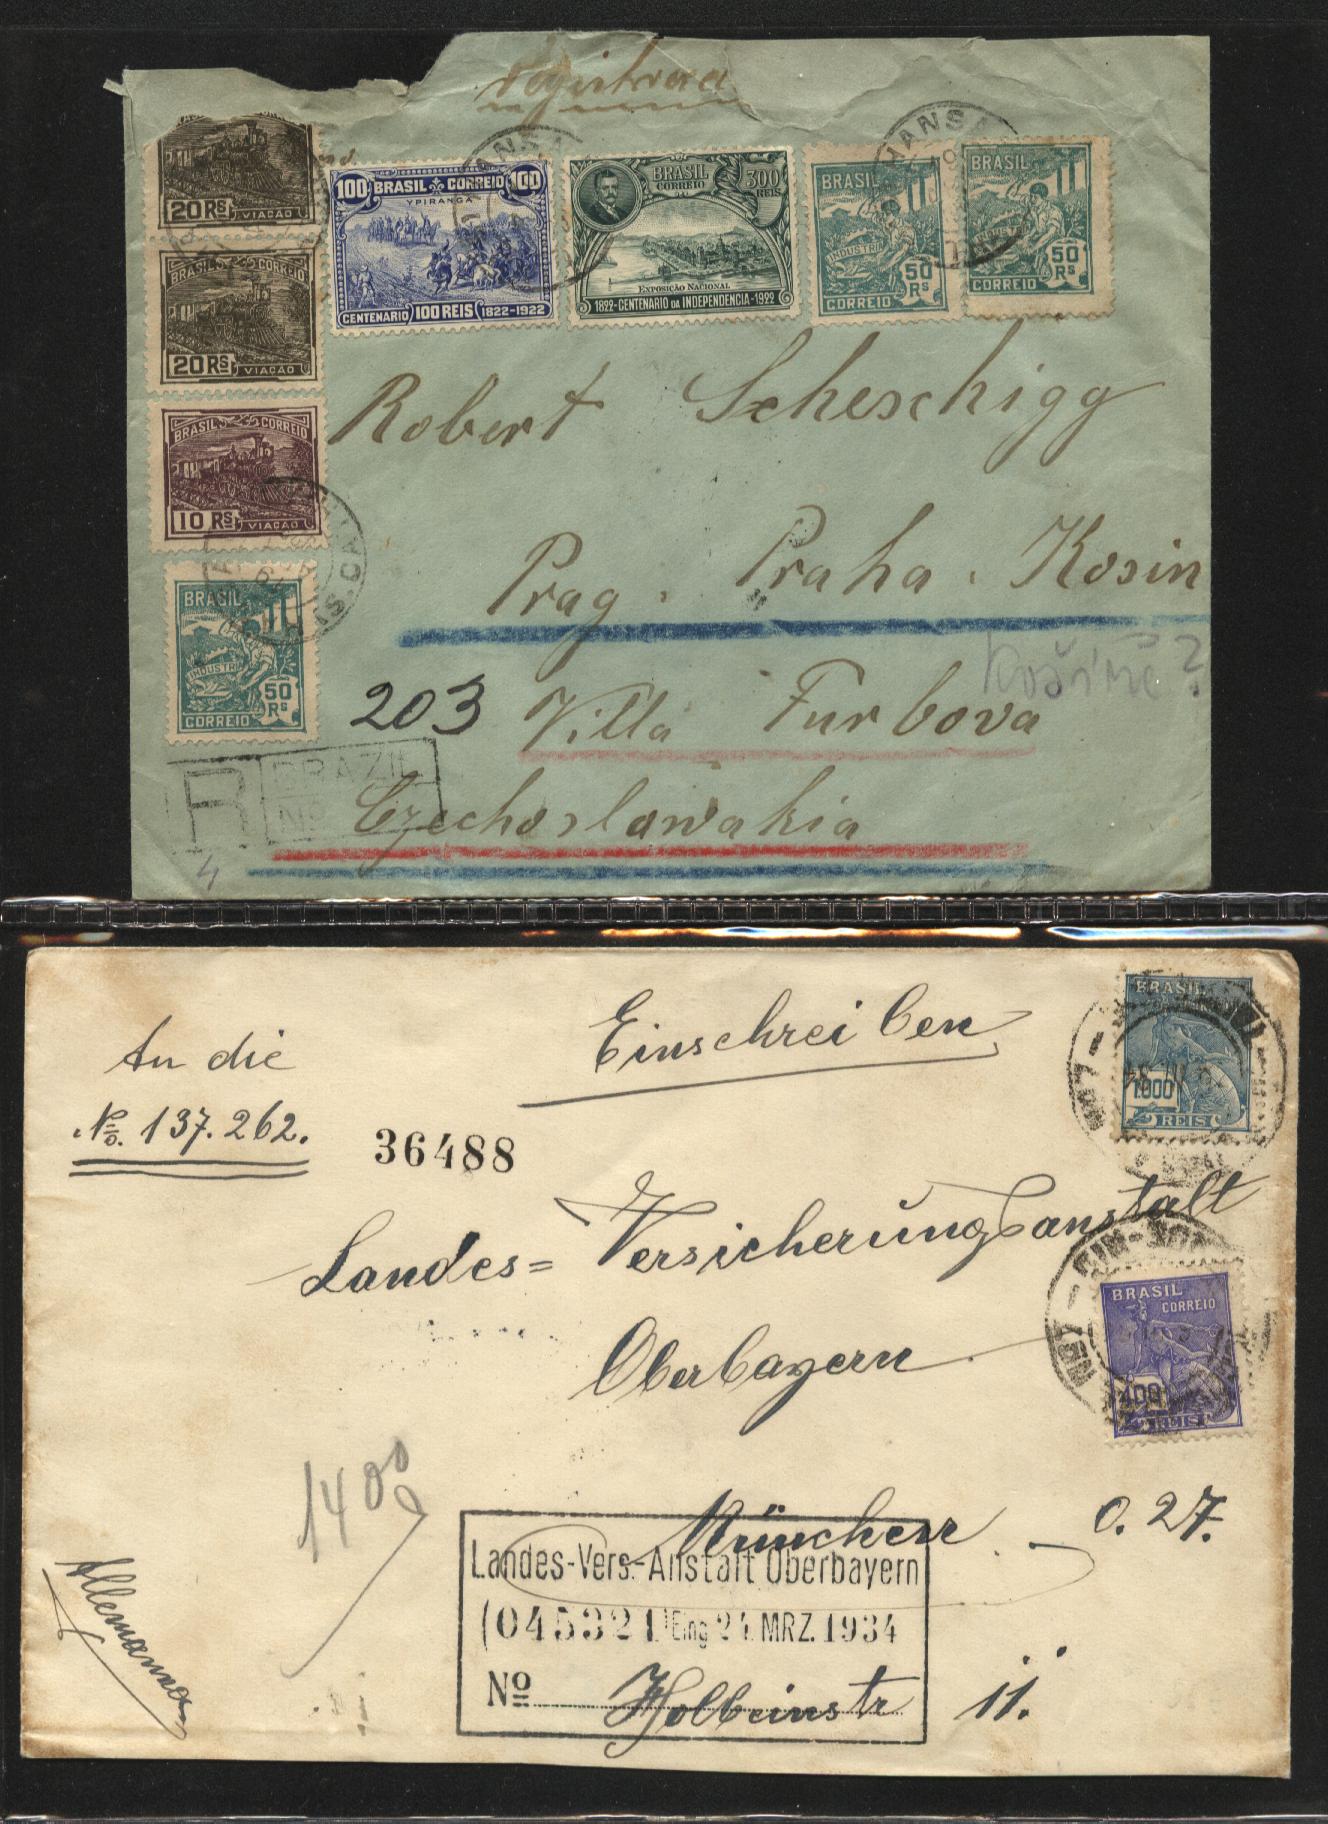 20 RS VIAÇÃO
BRASIL CORREIO
20 RS VIAÇÃO
BRASIL CORREIO
10 RS VIAÇÃO
BRASIL
INDUSTRIA
50 RS
CORREIO
100 BRASIL CORREIO 100
YPIRANGA
CENTENARIO 100 REIS 1822-1922
BRASIL CORREIO 300 REIS
EXPOSIÇÃO NACIONAL
1822-CENTENARIO DA INDEPENDENCIA-1922
BRASIL
INDUSTRIA
50 RS
CORREIO
BRASIL
INDUSTRIA
50 RS
CORREIO
HANSA
HANSA
Robert Scheschigg
Prag. Praha. Kosin
Košíře?
203 Villa Furbova
R BRAZIL
Nº
Czechoslowakia
4
Einschreiben
An die
No. 137.262.
36488
BRASIL
1.000
REIS
Landes= Versicherungsanstalt
Oberbayern.
BRASIL
CORREIO
400
REIS
1400
München O. 27.
Landes-Vers.-Anstalt Oberbayern
(045321) Eing 24. MRZ. 1934
Nº Holbeinstr 11.